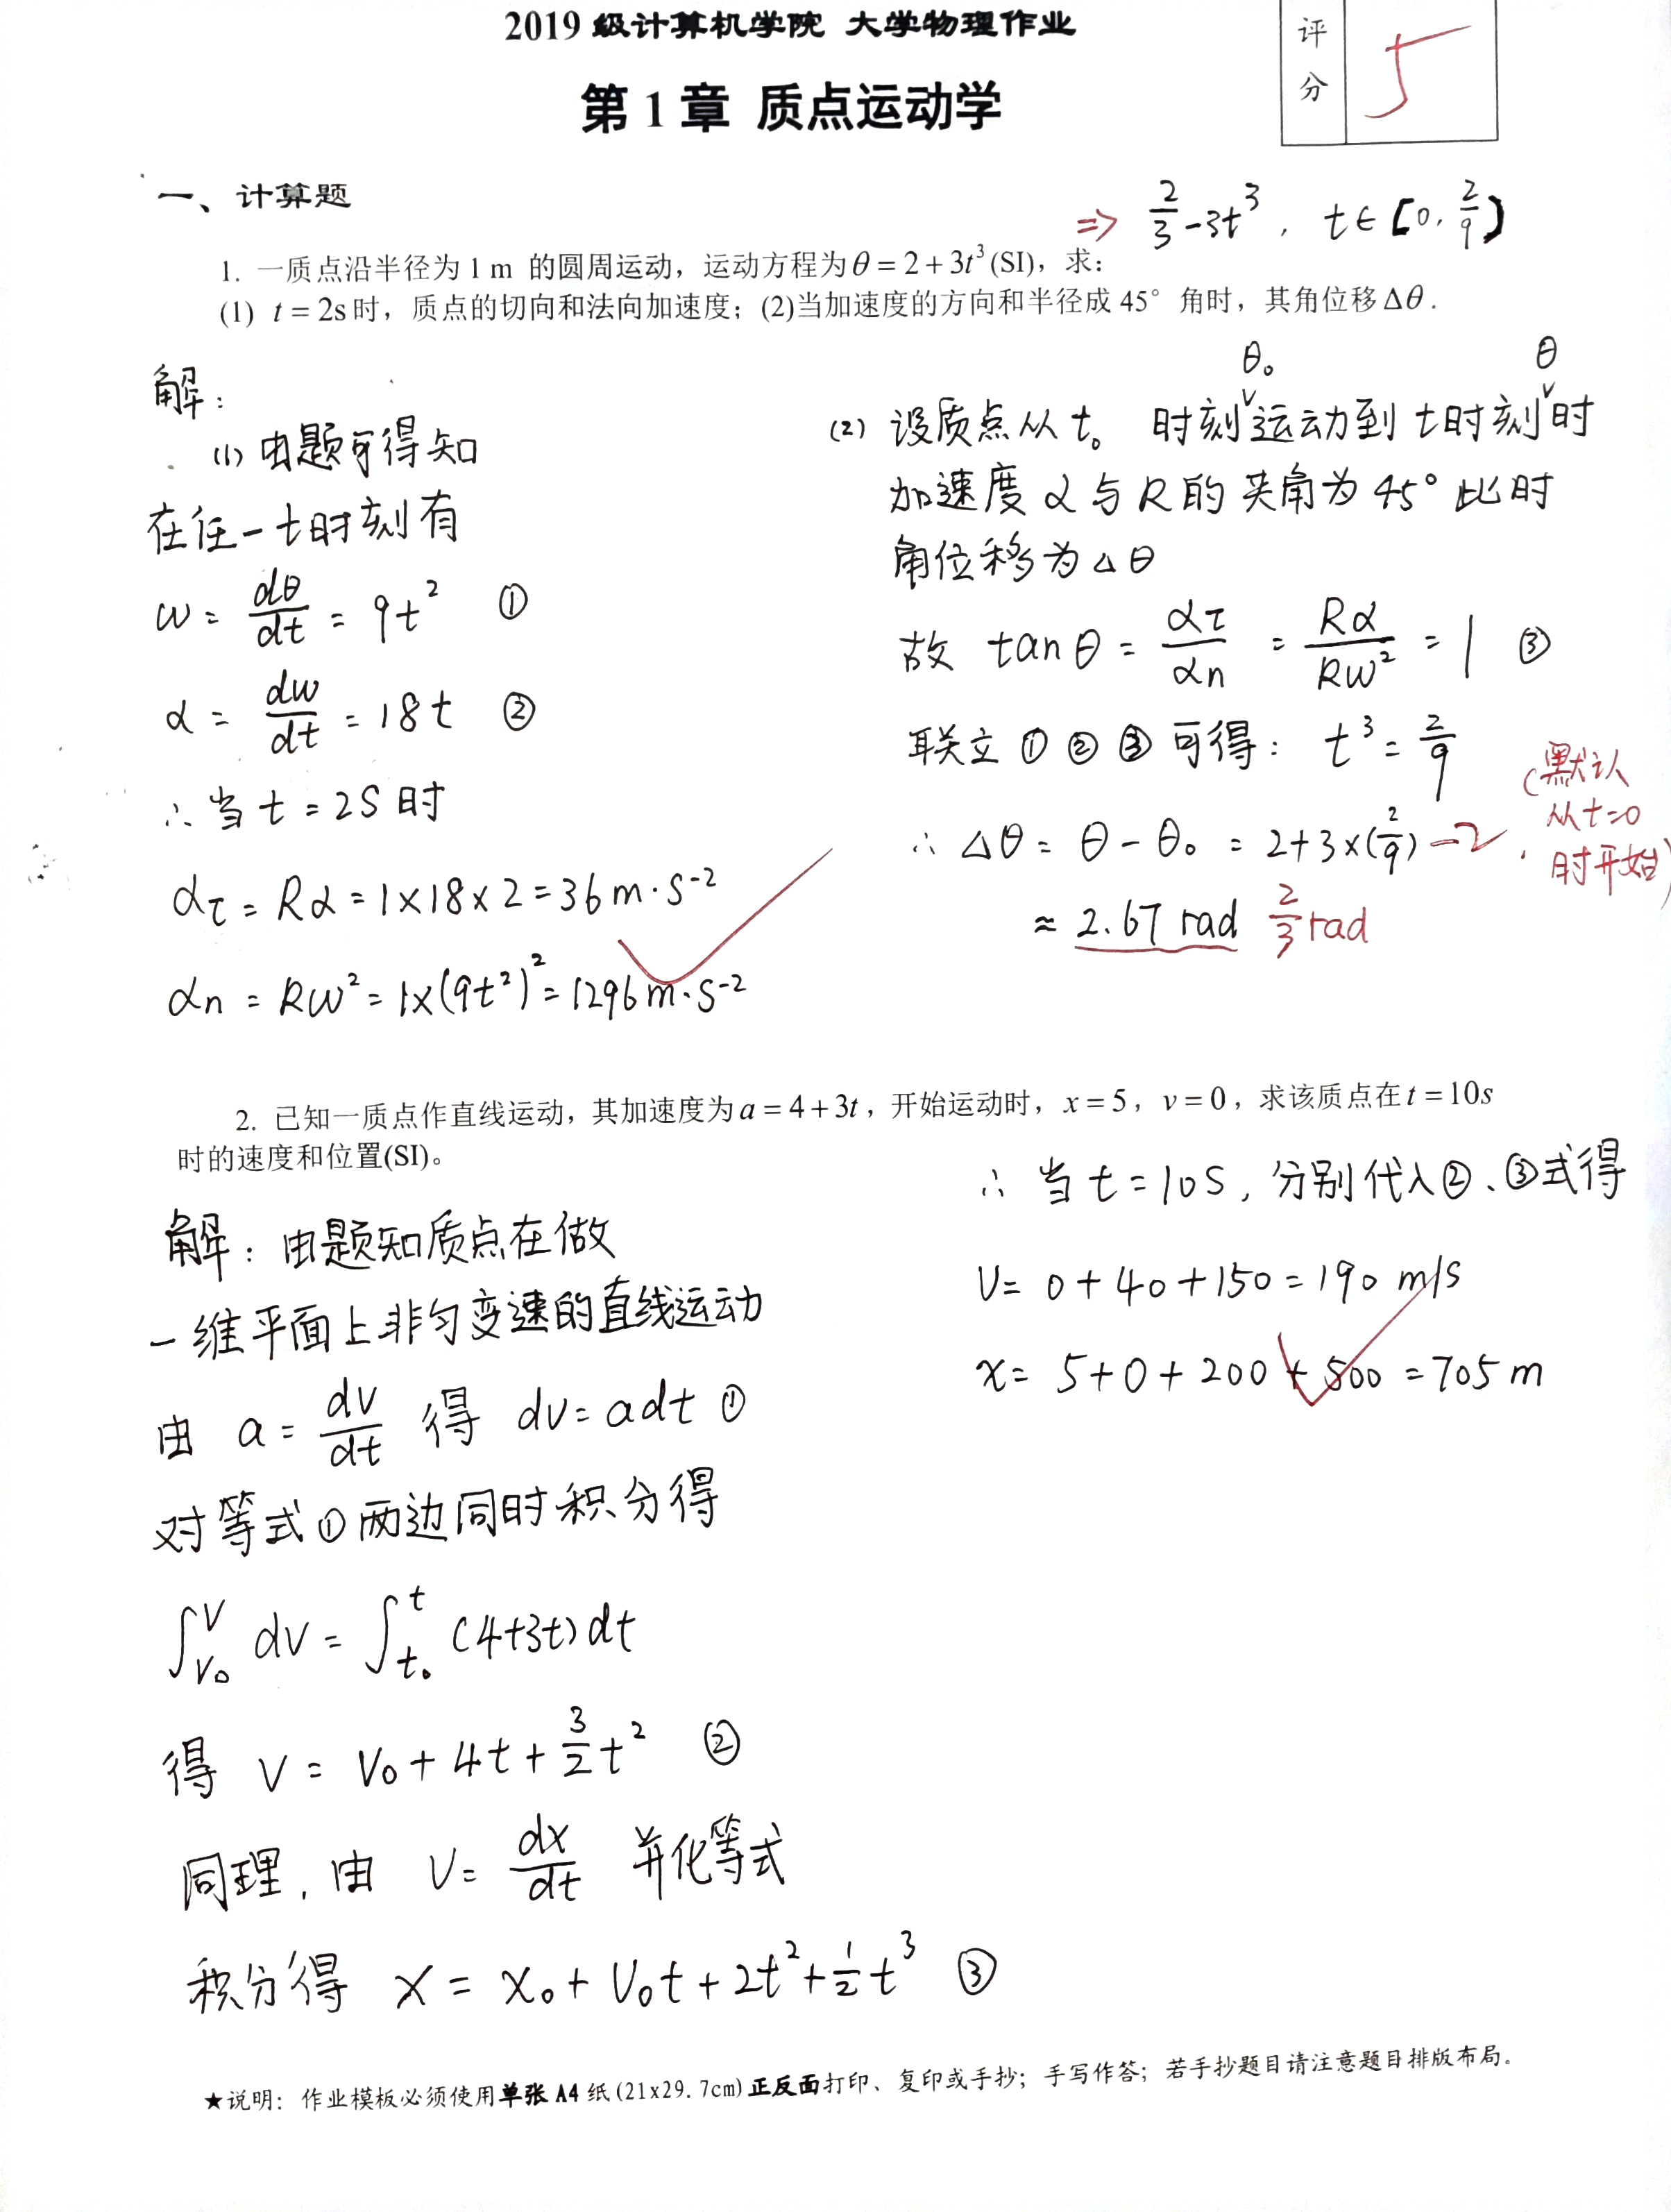 2019 级计算机学院 大学物理作业
评分
5
第 1 章 质点运动学
一、计算题
⇒ 2/3 - 3t³, t∈[0, 2/9]
1. 一质点沿半径为 1 m 的圆周运动，运动方程为 θ = 2 + 3t³ (SI)，求：
(1) t = 2s 时，质点的切向和法向加速度；(2)当加速度的方向和半径成 45° 角时，其角位移 Δθ .
解：
(1) 由题可得知
在任一t时刻有
ω = dθ/dt = 9t² ①
α = dω/dt = 18t ②
∴ 当 t = 2S 时
ατ = Rα = 1×18×2 = 36 m·S⁻²
αn = Rω² = 1×(9t²)² = 1296 m·S⁻²
θ₀ θ
(2) 设质点从 t₀ 时刻运动到 t时刻时
加速度 α 与 R 的夹角为 45° 此时
角位移为 Δθ
故 tanθ = ατ/αn = Rα/Rω² = 1 ③
联立 ① ② ③ 可得： t³ = 2/9
∴ Δθ = θ - θ₀ = 2+3×(2/9) -2
≈ 2.67 rad 2/3 rad
(默认
从t=0
时开始)
2. 已知一质点作直线运动，其加速度为 a = 4 + 3t，开始运动时，x = 5，v = 0，求该质点在 t = 10s
时的速度和位置(SI)。
解：由题知质点在做
一维平面上非匀变速的直线运动
由 a = dv/dt 得 dv = adt ①
对等式①两边同时积分得
∫_{v₀}^{v} dv = ∫_{t₀}^{t} (4+3t)dt
得 v = v₀ + 4t + 3/2 t² ②
同理，由 v = dx/dt 并化等式
积分得 x = x₀ + v₀t + 2t² + 1/2 t³ ③
∴ 当 t = 10S, 分别代入②、③式得
v = 0 + 40 + 150 = 190 m/s
x = 5 + 0 + 200 + 500 = 705 m
★说明：作业模板必须使用单张 A4 纸(21x29.7cm)正反面打印、复印或手抄；手写作答；若手抄题目请注意题目排版布局。